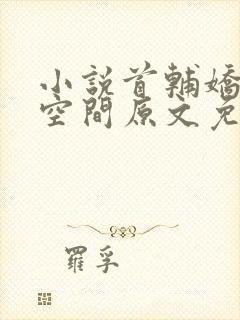 小說首輔嬌
空間原文免
羅孚